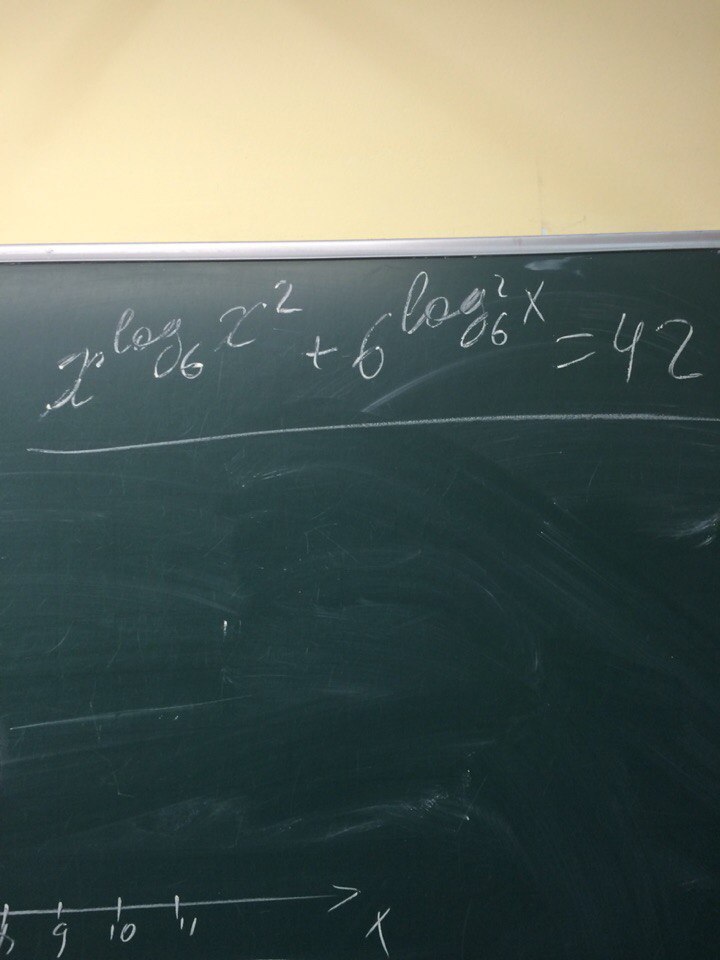 x^{log_6 x^2} + 6^{log_6^2 x} = 42
9 10 11 x